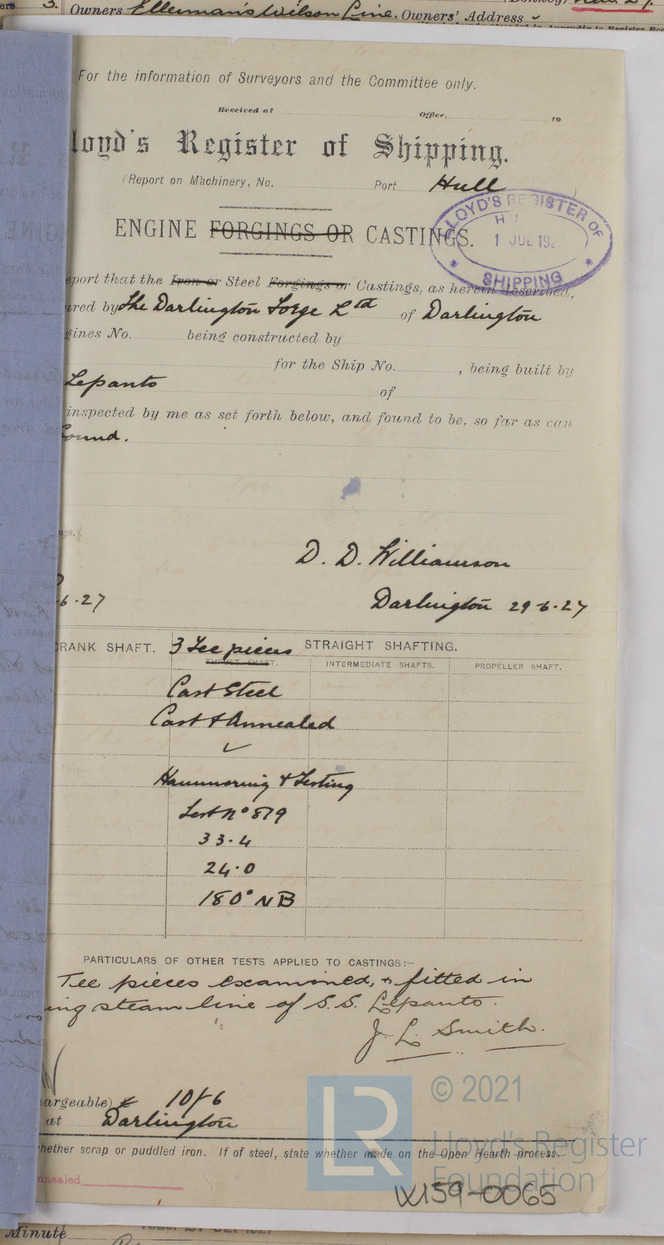 Owners Ellerman's Wilson Line. Owners' Address
For the information of Surveyors and the Committee only.
Received at Office, 19
loyd's Register of Shipping.
(Report on Machinery, No. Port Hull )
LLOYD'S REGISTER OF
1 JUL 192
SHIPPING
ENGINE FORGINGS OR CASTINGS.
eport that the Iron or Steel Forgings or Castings, as herein described,
ured by The Darlington Forge Ltd of Darlington
gines No. being constructed by
for the Ship No. , being built by
Lepanto
of
inspected by me as set forth below, and found to be, so far as can
Sound.
D. D. Williamson
6.27
Darlington 29-6-27
CRANK SHAFT. 3 Tee pieces STRAIGHT SHAFTING.
THRUST SHAFT. INTERMEDIATE SHAFTS. PROPELLER SHAFT.
Cast Steel
Cast & Annealed
Hammering & Testing
Test No 879
33.4
24.0
180° NB
PARTICULARS OF OTHER TESTS APPLIED TO CASTINGS:-
Tee pieces examined, & fitted in
ing steam line of S.S. Lepanto.
J. L. Smith.
argeable) £ 10/6
at Darlington
hether scrap or puddled iron. If of steel, state whether made on the Open Hearth process.
nnealed
© 2021
LR
Lloyd's Register
Foundation
W159-0065
Minute